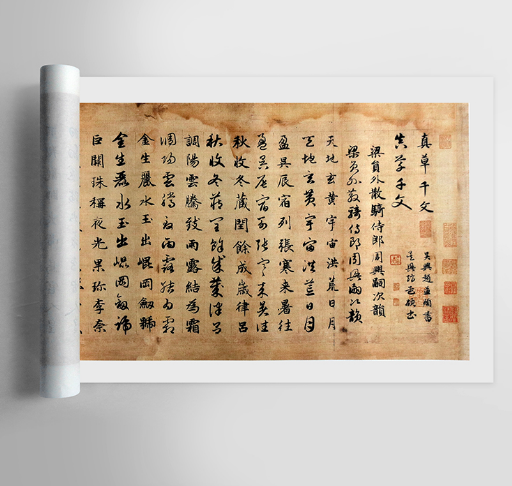 真草千文
吳興趙孟頫書
真草千文
吳興趙孟頫書
梁員外散騎侍郎周興嗣次韻
梁員外散騎侍郎周興嗣次韻
天地玄黃宇宙洪荒日月
天地玄黃宇宙洪荒日月
盈昃辰宿列張寒来暑往
盈昃辰宿列張寒来暑往
秋收冬藏閏餘成歲律呂
秋收冬藏閏餘成歲律呂
調陽雲騰致雨露結為霜
調陽雲騰致雨露結為霜
金生麗水玉出崐岡劒號
金生麗水玉出崐岡劒號
巨闕珠稱夜光果珍李柰